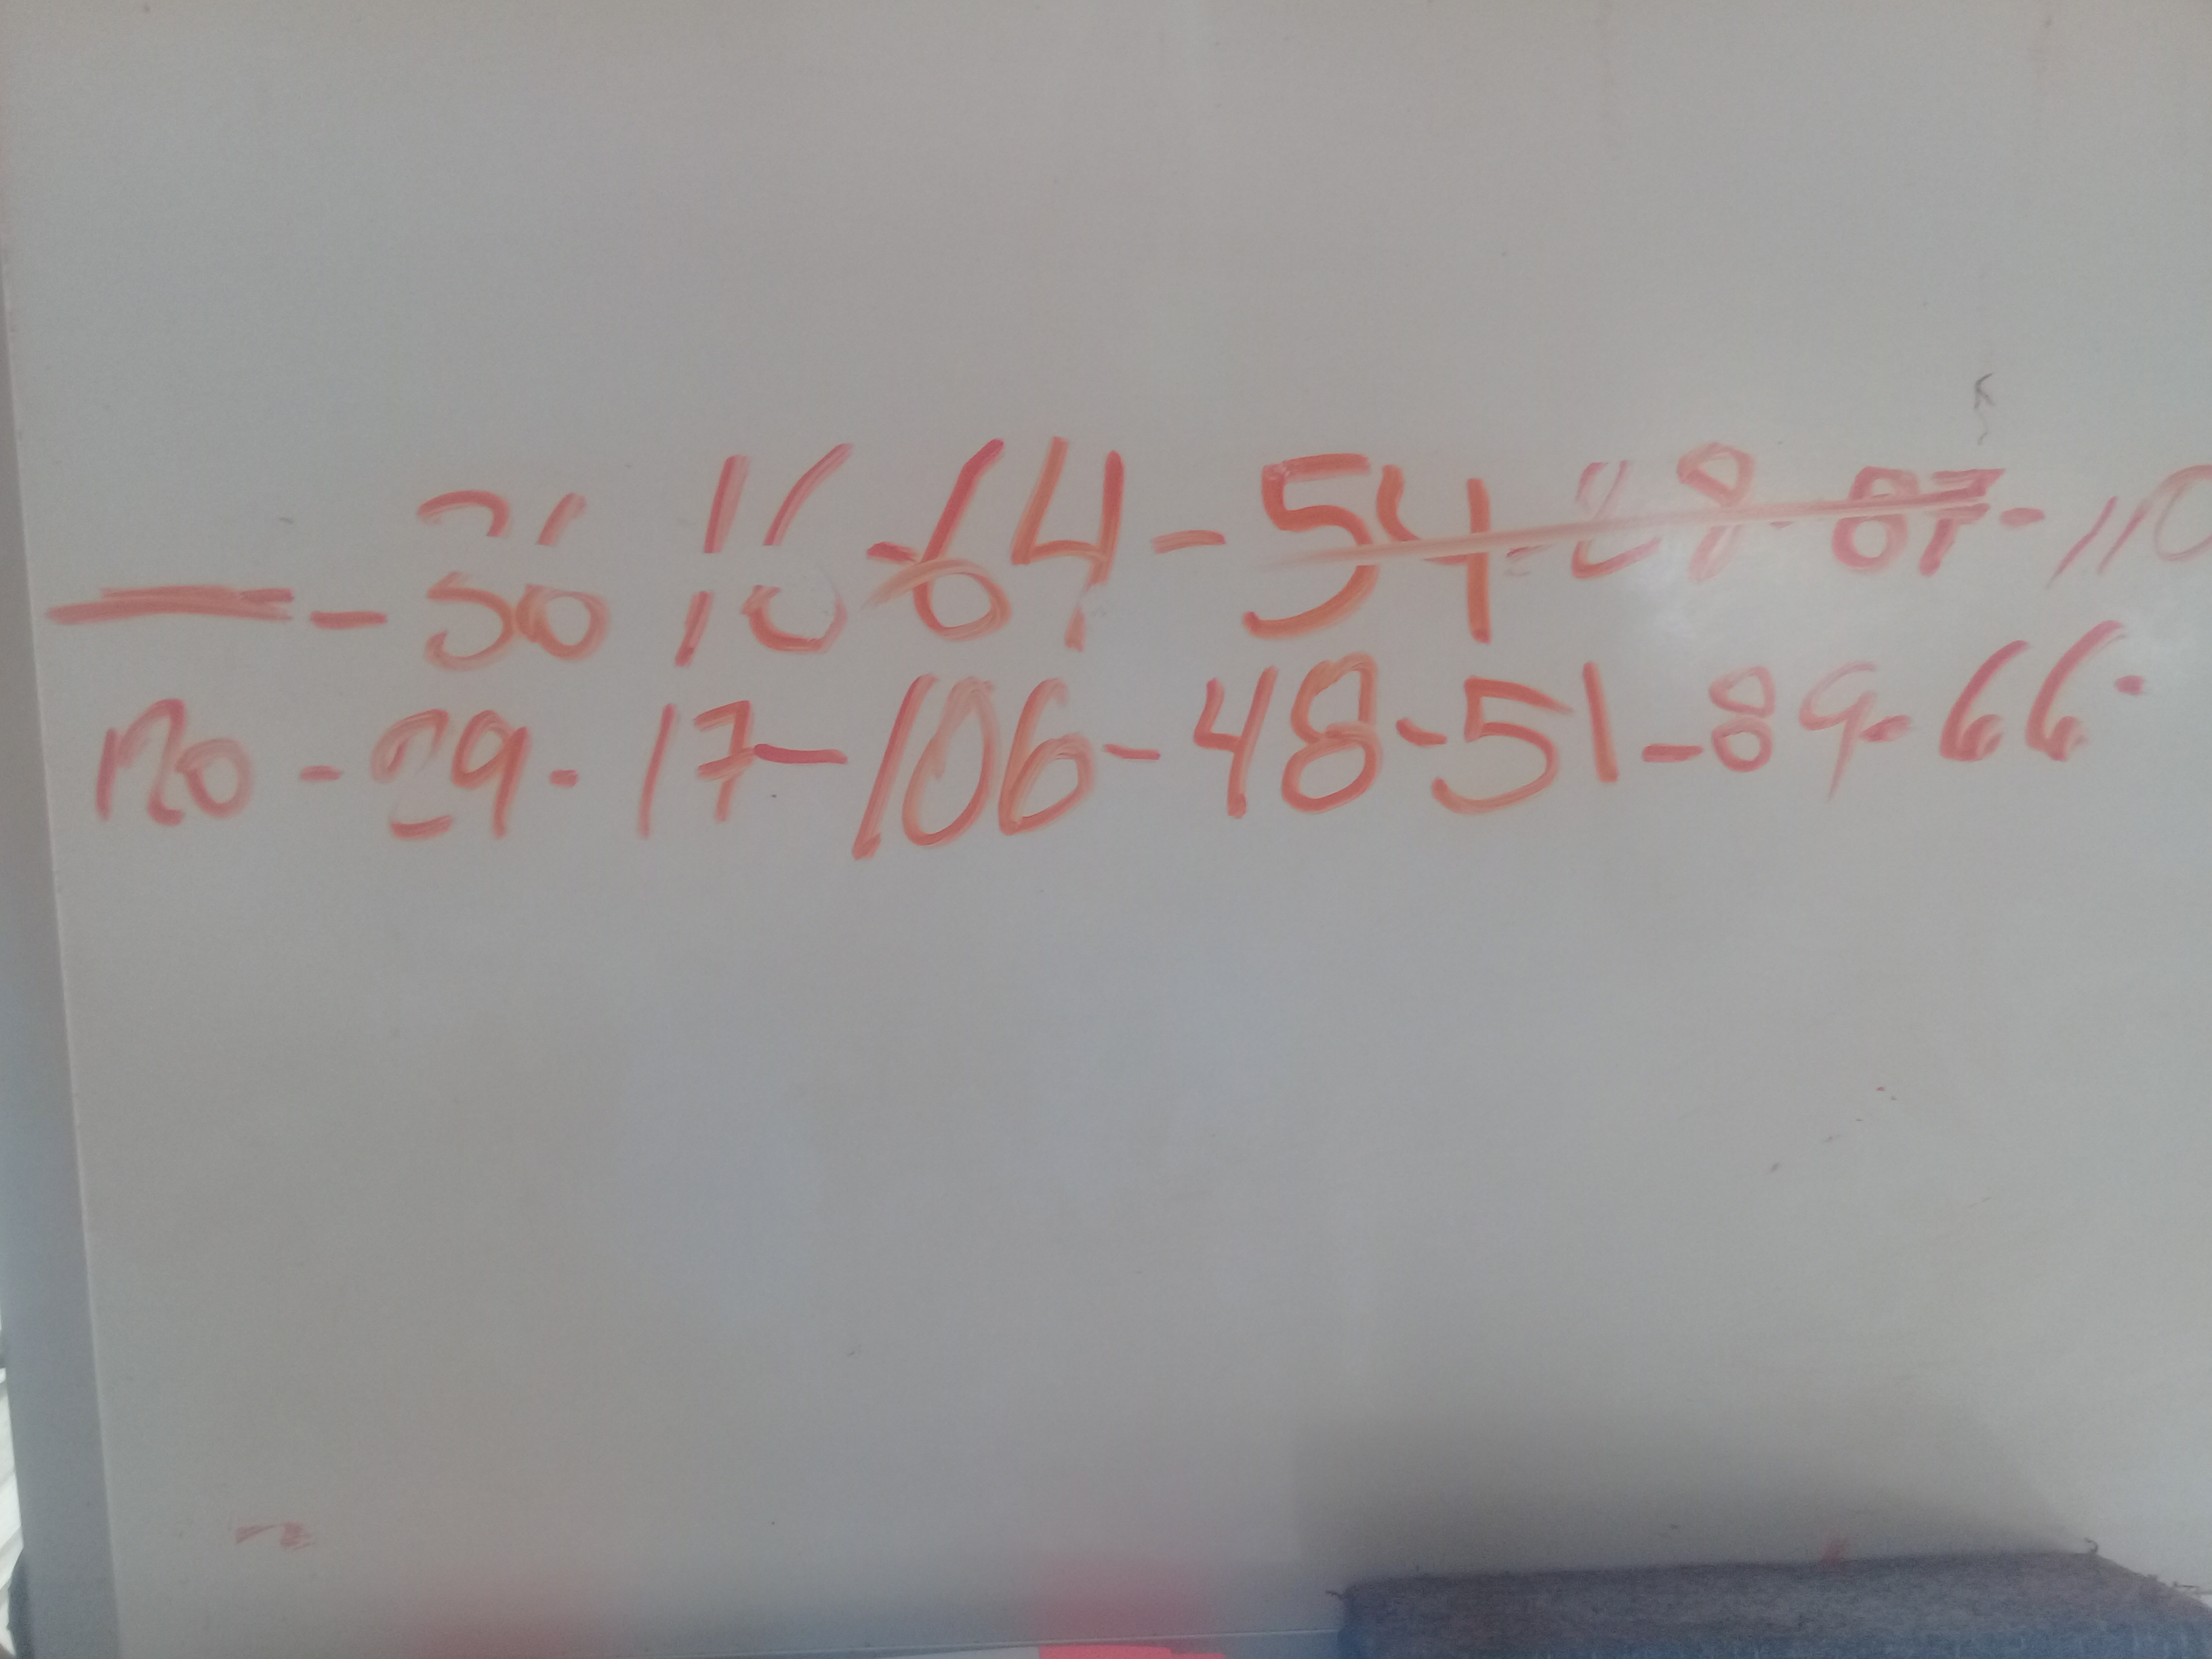 — - 36 16 - 64 - 54 - 28 - 87 - 110
120 - 29 - 17 - 106 - 48 - 51 - 89 - 66 -